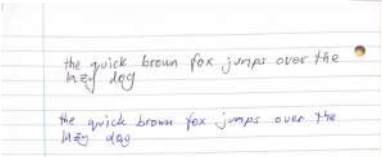 the quick brown fox jumps over the
lazy dog
the quick brown fox jumps over the
lazy dog